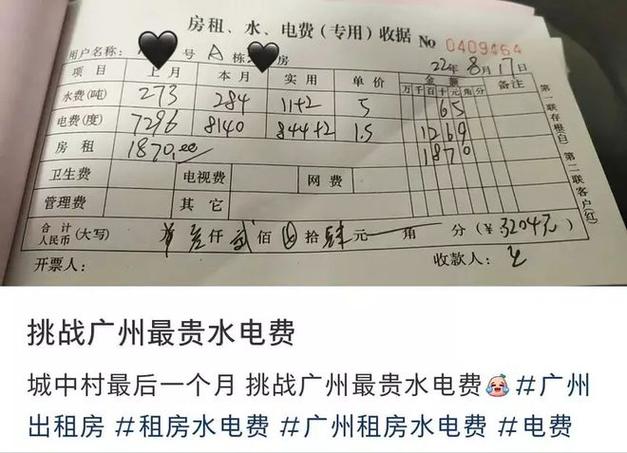 房租、水、电费(专用)收据 No 0409464
用户名称: 号 A 栋 房 22年8月17日
项目 上月 本月 实用 单价 金额 备注
万千百十元角分
水费(吨) 273 284 11+2 5 65
电费(度) 7296 8140 844+2 1.5 1269
房租 1870.00 1870
卫生费 电视费 网费
管理费 其它
合计人民币(大写) 仟贰佰 拾肆元 角 分(¥3204元)
开票人: 收款人:
第一联存根(白) 第二联客户(红)
挑战广州最贵水电费
城中村最后一个月 挑战广州最贵水电费😂 #广州
出租房 #租房水电费 #广州租房水电费 #电费